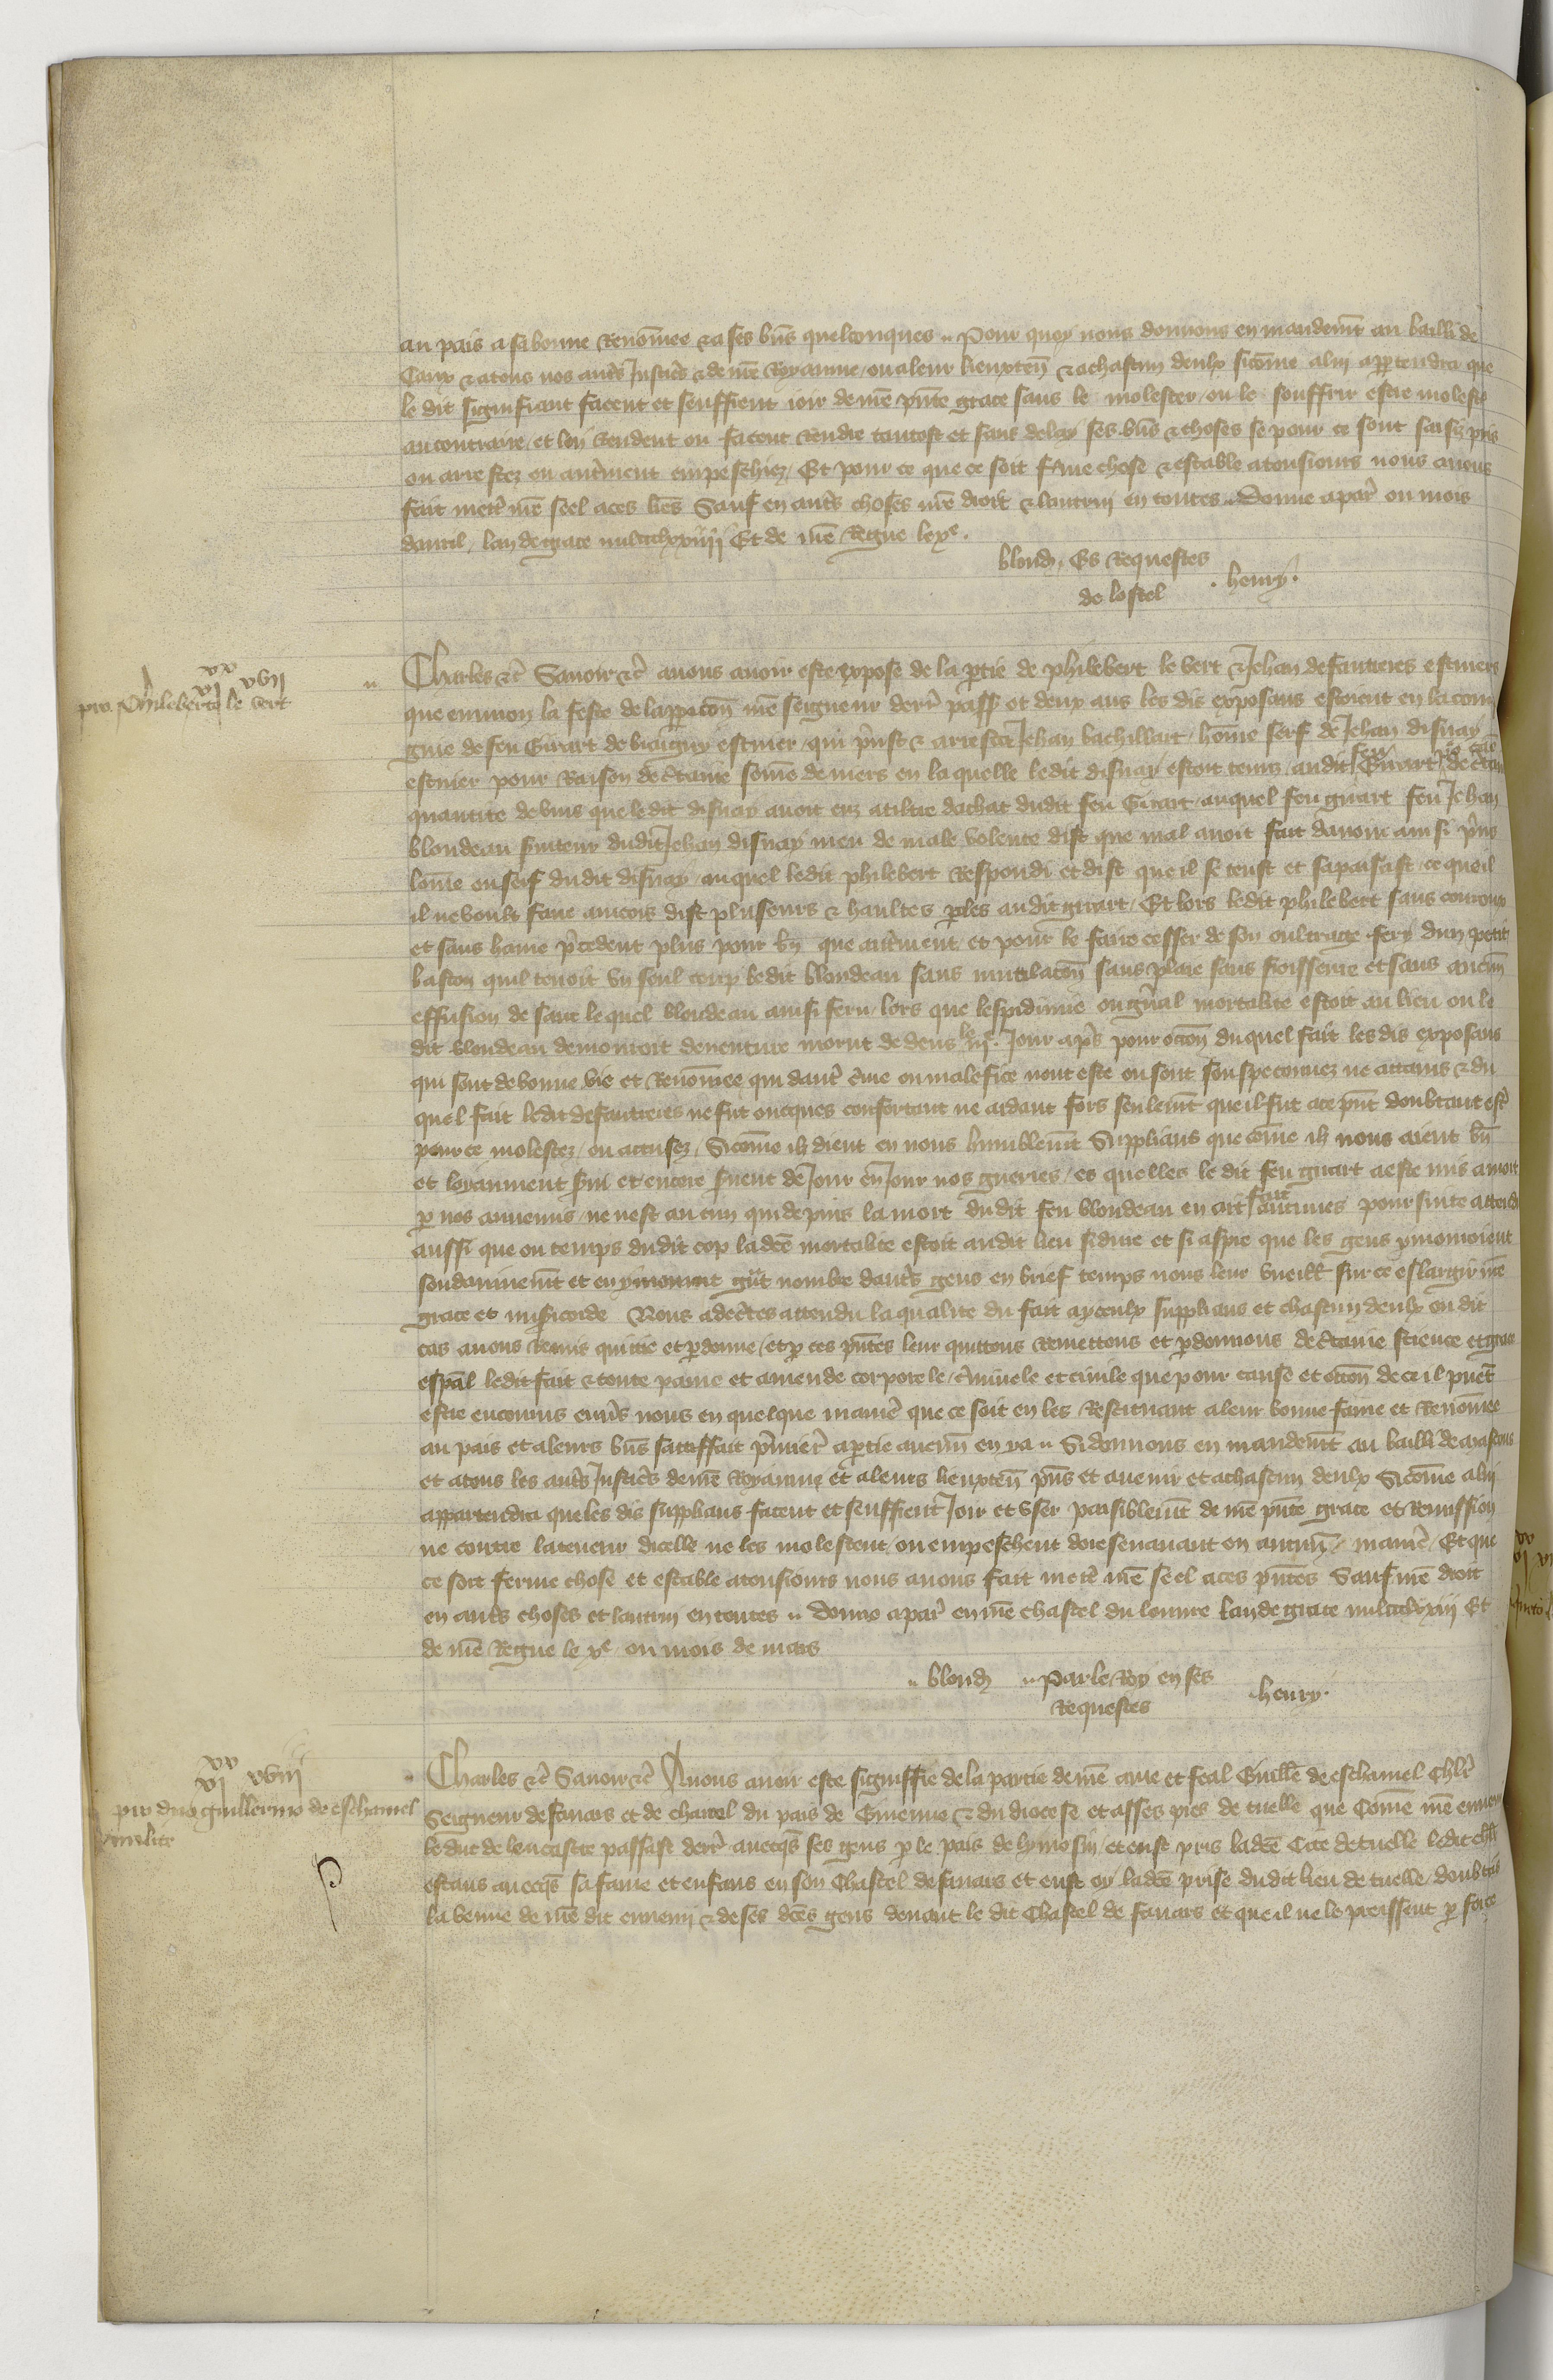 au pais a sa bonne Renom̄ee & a ses bn̄s quelconques Pour quoy nous donnons en mandem̄t au bailli de
Caux & a tous nos aut̃s Justic̃s & de nr̃e Royaume ou a leur lieuxten̄ & a chascun deulx si cōme a lui appartendra que
le dit signifiant facent et seuffrent ioir de nr̃e p̃nte grace sans le molester ou le souffrir estre moleste
au contraire et lui Rendent ou facent Rendre tantost et sans delay ses bn̄s & choses se pour ce sont saisiz pris
ou arrestez ou autrement empeschiez Et pour ce que ce soit ferme chose & estable a tousiours nous auons
fait mett̃ nr̃e seel a ces lr̃es Sauf en aut̃s choses nr̃e droit & lautruy en toutes Donne a par̃ ou mois
dauril lan de grace mil ccclxxiiii Et de nr̃e Regne le xe.
blond Es Requestes
de lostel . henry .
xx
vi vii
pro Phileberto le vert
Charles &c̃ Sauoir &c̃ a nous auoir este expose de la p̱tie de philebert le vert & Jehan de fautieres escuiers
que enuiron la feste de lapparicōn nr̃e seigneur dern̄ pass̃ et deux ans les dis exposans estoient en la com
gnie de feu Girart de escuier qui p̃nst & arresta Jehan bachillart hōme serf de Jehan disnay
escuier pour Raison de c̃taine sōme de en la quelle le dit disnay estoit tenuz au dit feu Girart pr̃ cãe de c̃tai
quantite de vins que le dit disnay auoit euz a tiltre dachat dudit feu Girart auquel feu girart feu Jehan
blondeau s̃uiteur dudit Jehan disnay meu de male volente dist que mal auoit fait dauoir ainsi p̃ns
lōme ou serf dudit disnay auquel ledit philebert Respondi et dist que il se teust et sapaisast ce que il
il ne voult faire aincois dist pluseurs & haultes p̱les au dit girart Et lors ledit philebert sans courroux
et sans haine p̃cedent plus pour bn̄ que aut̃ment et pour le faire cesser de son oultrage fery dun petit
baston quil tenoit vn seul coup ledit blondeau sans mutilacōn sans plaie sans froisseure et sans aucun̄
effusion de sanc le quel blondeau ainsi feru lors que lespidimie ou gñal mortalite estoit au lieu ou le
dit blondeau demouroit dauenture morut dedens le iiie. Jour apr̃s pour occōn du quel fait les dis exposans
qui sont de bonne vie et Renōmee qui daut̃ c̃me ou malefice nont este ou sont souspeconnez ne attains & du
quel fait ledit de fautieres ne fut oncques confortant ne aidant fors seulem̄t que il fut a ce p̃nt doubtent est̃
pour ce molestez ou accusez Si cōme ilz dient en nous humblem̄t Supplians que cōme ilz nous aient bn̄
et loyaument s̃ui et encore s̃uent de Jour en Jour nos guerres es quelles le dit feu girart a este mis a mort
p̱ nos ennemis ne nest aucun qui depuis la mort du dit feu blondeau en ait fait aucunes poursuite attendu
aussi que ou temps dudit cop la dc̃e mortalite estoit au dit lieu si dure et si aspre que les gens y mouroient
soudainem̄t et en y mourut gr̃t nombre daut̃s gens en brief temps nous leur vueill̃ sur ce eslargir nr̃e
grace et mis̃icorde Nous adec̃tes attendu la qualite du fait a yceulx supplians et chascun deulx ou dit
cas auons Remis quitte et p̱donne et p̱ ces p̃ntes leur quittons Remettons et p̱donnons de c̃taine science et grace
esp̃al le dit fait & toute paine et amende corporele c̃minele et ciuile que pour cause et occōn de ce il pueẽt
estre encouruz enũs nous en quelque manier̃ que ce soit en les Restituant a leur bonne fame et Renōmee
au pais et a leurs bn̄s sattiffait p̃mier̃ a p̱tie aucun̄ en y a Si donnons en mandem̄t au bailli de mascons
et a tous les aut̃s Justic̃s de nr̃e Royaume et a leurs lieuxten̄ p̃ns et auenir et a chascun deulx Si cōme a lui
appartendra que les dis supplians facent et seuffrent Joir et vser paisiblem̄t de nr̃e p̃nte grace et Remission
ne contre la teneur dicelle ne les molestent ou empeschent doresenauant en aucun̄ manier̃ Et que
ce soit ferme chose et estable a tousiours nous auons fait mett̃ nr̃e seel a ces p̃ntes Sauf nr̃e droit
en aut̃s choses et lautruy en toutes donne a par̃ en nr̃e chastel du louure lan de grace mil ccclxxiii Et
de nr̃e Regne le xe ou mois de mars
blond Par le Roy en ses
Requestes henry.
xx
vi viii
pro dño guillermo de eschamel
milite
Charles &c̃ Sauoir &c̃ A nous auoir este signiffie de la partie de nr̃e ame et feal Guill̃e de eschamel chl̃r
Seigneur de fanars et de chatel du pais de Guienne & du diocese et asses pres de tuelle que Cōme nr̃e ennemi
le duc de lencastre passast derr̃ auecq̃s ses gens p̱ le pais de lymosin et eust pris la dc̃e Cite de tuelle le dit chl̃r
estans auecq̃s sa fame et enfans en son Chastel de fanars et eust oy la dc̃e prise du dit lieu de tuelle doubtãs
la venue de nr̃e dit ennemi & de ses dc̃es gens deuant le dit Chastel de fanars et que il ne le preissent p̱ force